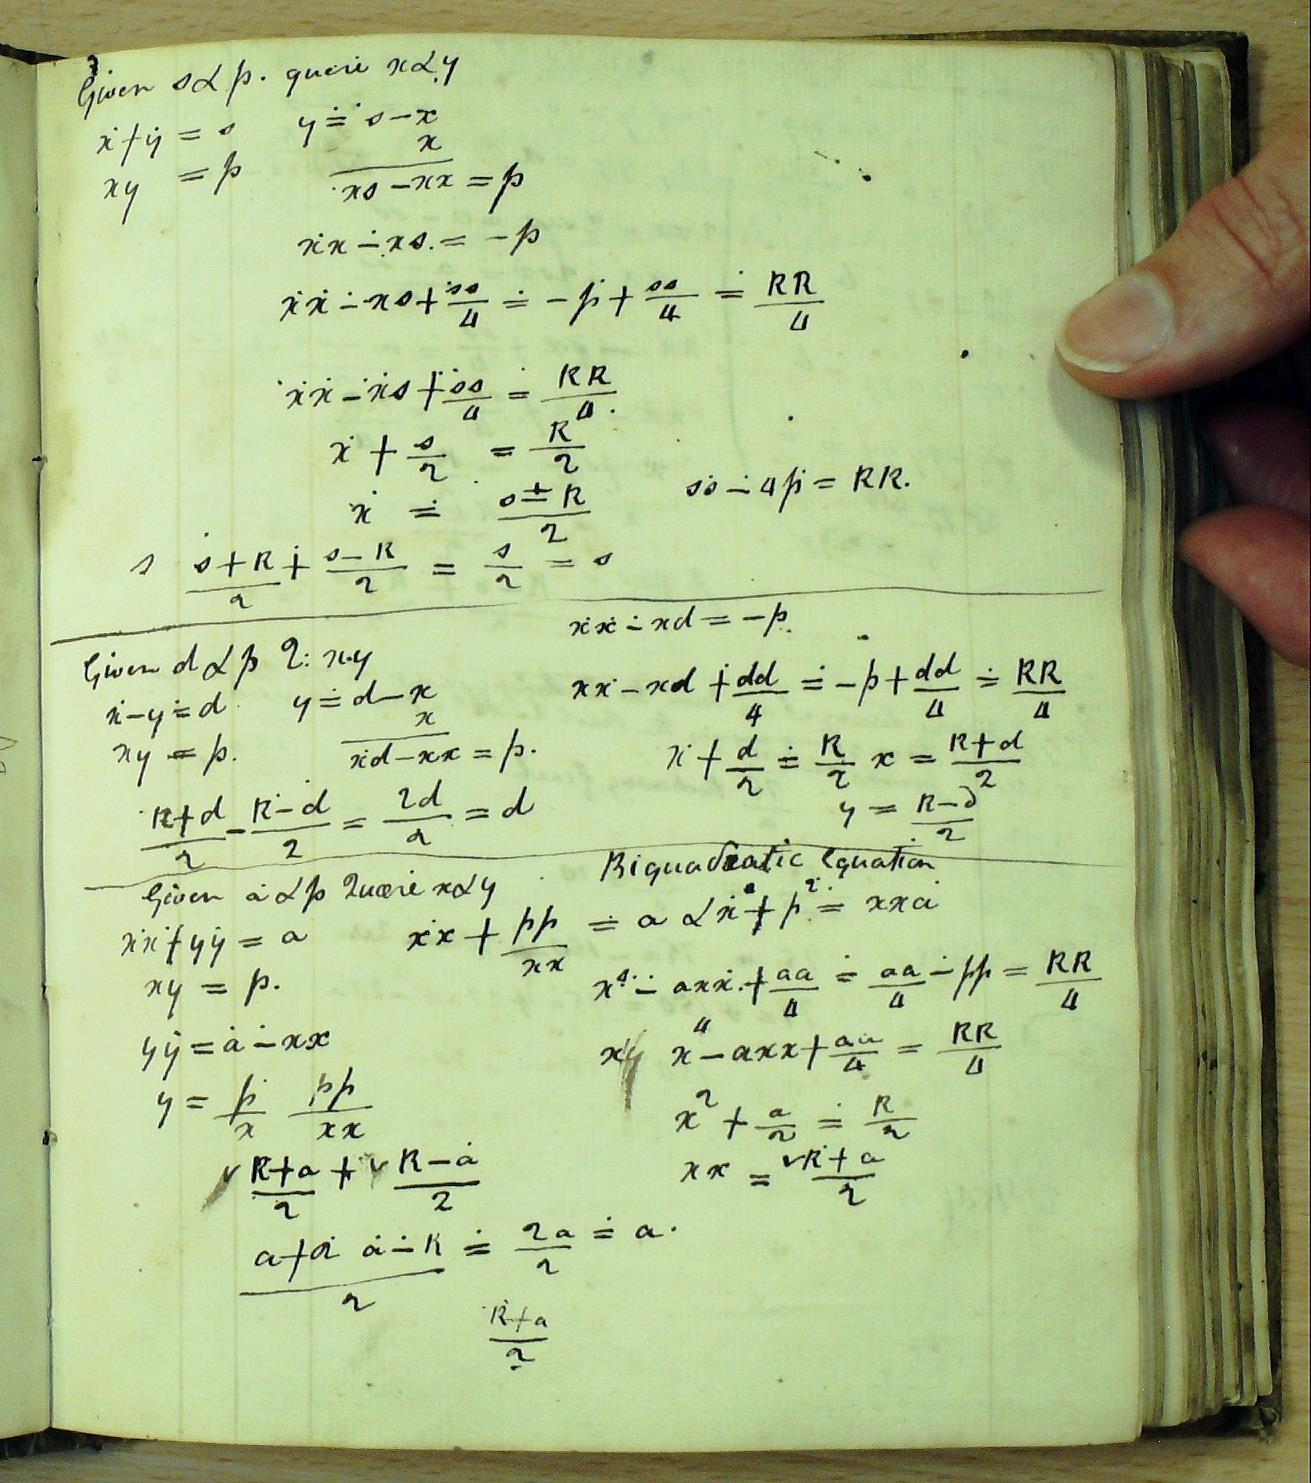 Given s & p. queri x & y
x + y = s    y = s - x
x
xy = p    xs - xx = p
xx - xs = -p
xx - xs + ss/4 = -p + ss/4 = RR/4
xx - xs + ss/4 = RR/4.
x + s/2 = R/2
x = s ± R/2    ss - 4p = RR.
s  s + R/2 + s - R/2 = s/2 = s
xx - xd = -p.
Given d & p Q: x.y
x - y = d    y = d - x    xx - xd + dd/4 = -p + dd/4 = RR/4
x
xy = p.    xd - xx = p.    x + d/2 = R/2  x = R + d/2
R + d/2 - R - d/2 = 2d/2 = d    y = R - d/2
Biquadratic Equation
Given a & p Quæri x & y
xx + yy = a    xx + pp/xx = a & x⁴ + p² = xxa
xy = p.    x⁴ - axx + aa/4 = aa/4 - pp = RR/4
yy = a - xx    xy  x⁴ - axx + aa/4 = RR/4
y = p/x  pp/xx    x² + a/2 = R/2
√R + a/2 + √R - a/2    xx = √R + a/2
a + R a - R/2 = 2a/2 = a.
R + a/2